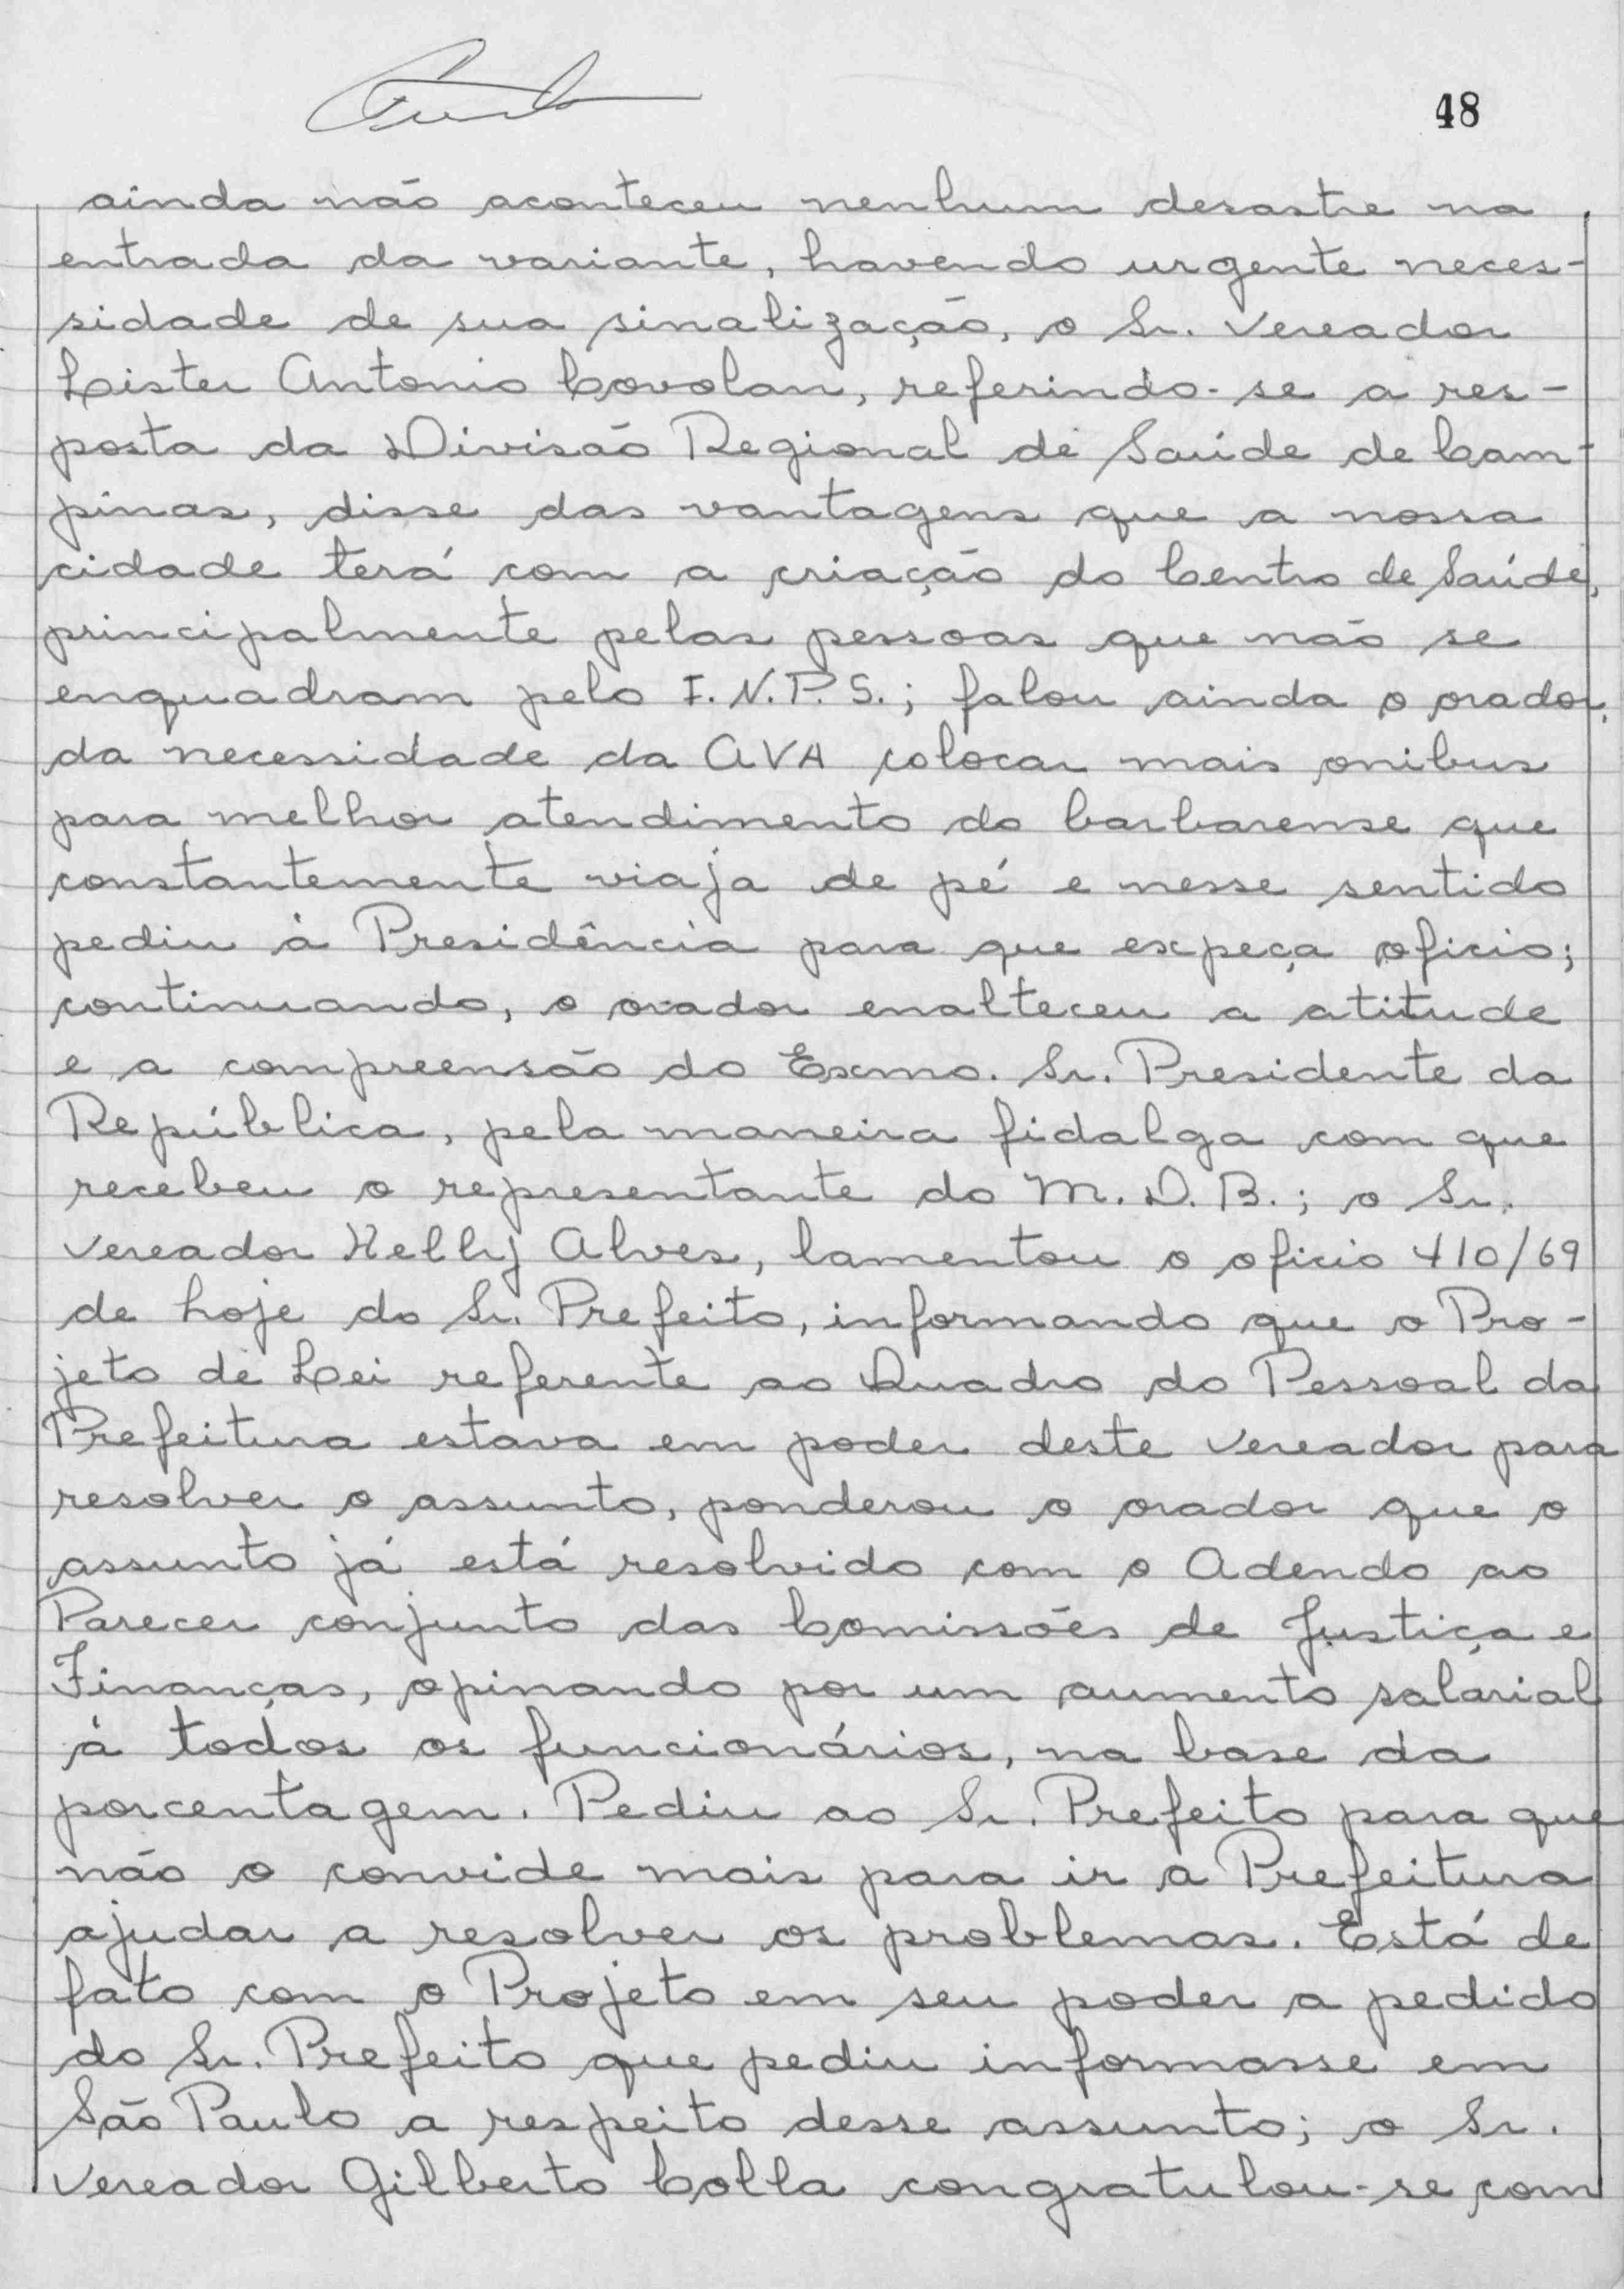 48
ainda não aconteceu nenhum desastre na
entrada da variante, havendo urgente neces-
sidade de sua sinalização, o Sr. Vereador
Lister Antonio Covolan, referindo-se a res-
posta da Divisão Regional de Saúde de Cam-
pinas, disse das vantagens que a nossa
cidade terá com a criação do Centro de Saúde,
principalmente pelas pessoas que não se
enquadram pelo I.N.P.S.; falou ainda o orador,
da necessidade da AVA colocar mais onibus
para melhor atendimento do barbarense que
constantemente viaja de pé e nesse sentido
pediu à Presidência para que expeça oficio;
continuando, o orador enalteceu a atitude
e a compreensão do Exmo. Sr. Presidente da
República, pela maneira fidalga com que
recebeu o representante do M.D.B.; o Sr.
Vereador Kelly Alves, lamentou o oficio 410/69
de hoje do Sr. Prefeito, informando que o Pro-
jeto de Lei referente ao Quadro do Pessoal da
Prefeitura estava em poder deste Vereador para
resolver o assunto, ponderou o orador que o
assunto já está resolvido com o Adendo ao
Parecer conjunto das Comissões de Justiça e
Finanças, opinando por um aumento salárial
à todos os funcionários, na base da
porcentagem. Pediu ao Sr. Prefeito para que
não o convide mais para ir a Prefeitura
ajudar a resolver os problemas. Está de
fato com o Projeto em seu poder a pedido
do Sr. Prefeito que pediu informasse em
São Paulo a respeito desse assunto; o Sr.
Vereador Gilberto Colla congratulou-se com